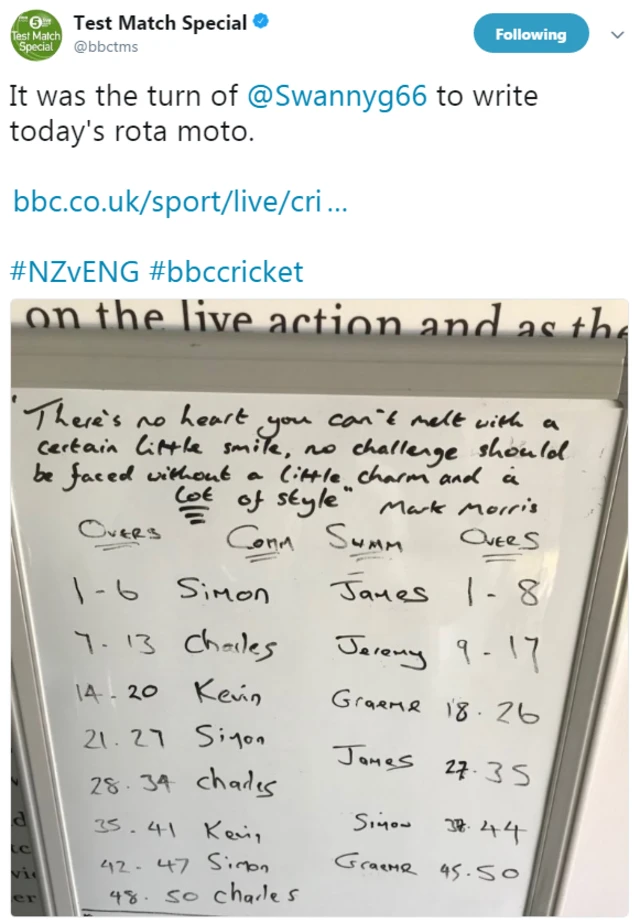 Test Match Special
@bbctms
Following
5 live
Test Match
Special
It was the turn of @Swannyg66 to write
today's rota moto.
bbc.co.uk/sport/live/cri ...
#NZvENG #bbccricket
on the live action and as the
"There's no heart you can't melt with a
certain little smile, no challenge should
be faced without a little charm and a
lot of style" Mark Morris
Overs Comm Summ Overs
1-6 Simon James 1-8
7-13 Charles Jeremy 9-17
14-20 Kevin Graeme 18-26
21-27 Simon James 27-35
28-34 Charles
35-41 Kevin Simon 36-44
42-47 Simon Graeme 45-50
48-50 Charles